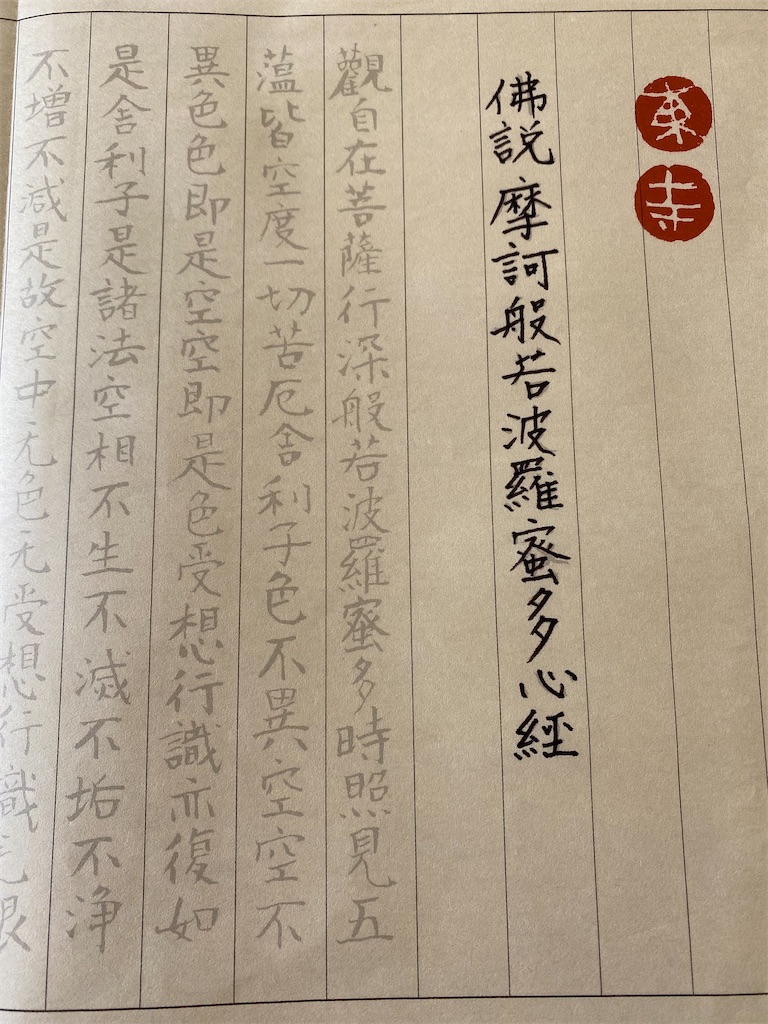 東寺
佛説摩訶般若波羅蜜多心經
觀自在菩薩行深般若波羅蜜多時照見五
蕰皆空度一切苦厄舎利子色不異空空不
異色色即是空空即是色受想行識亦復如
是舎利子是諸法空相不生不滅不垢不浄
不增不減是故空中无色无受想行識